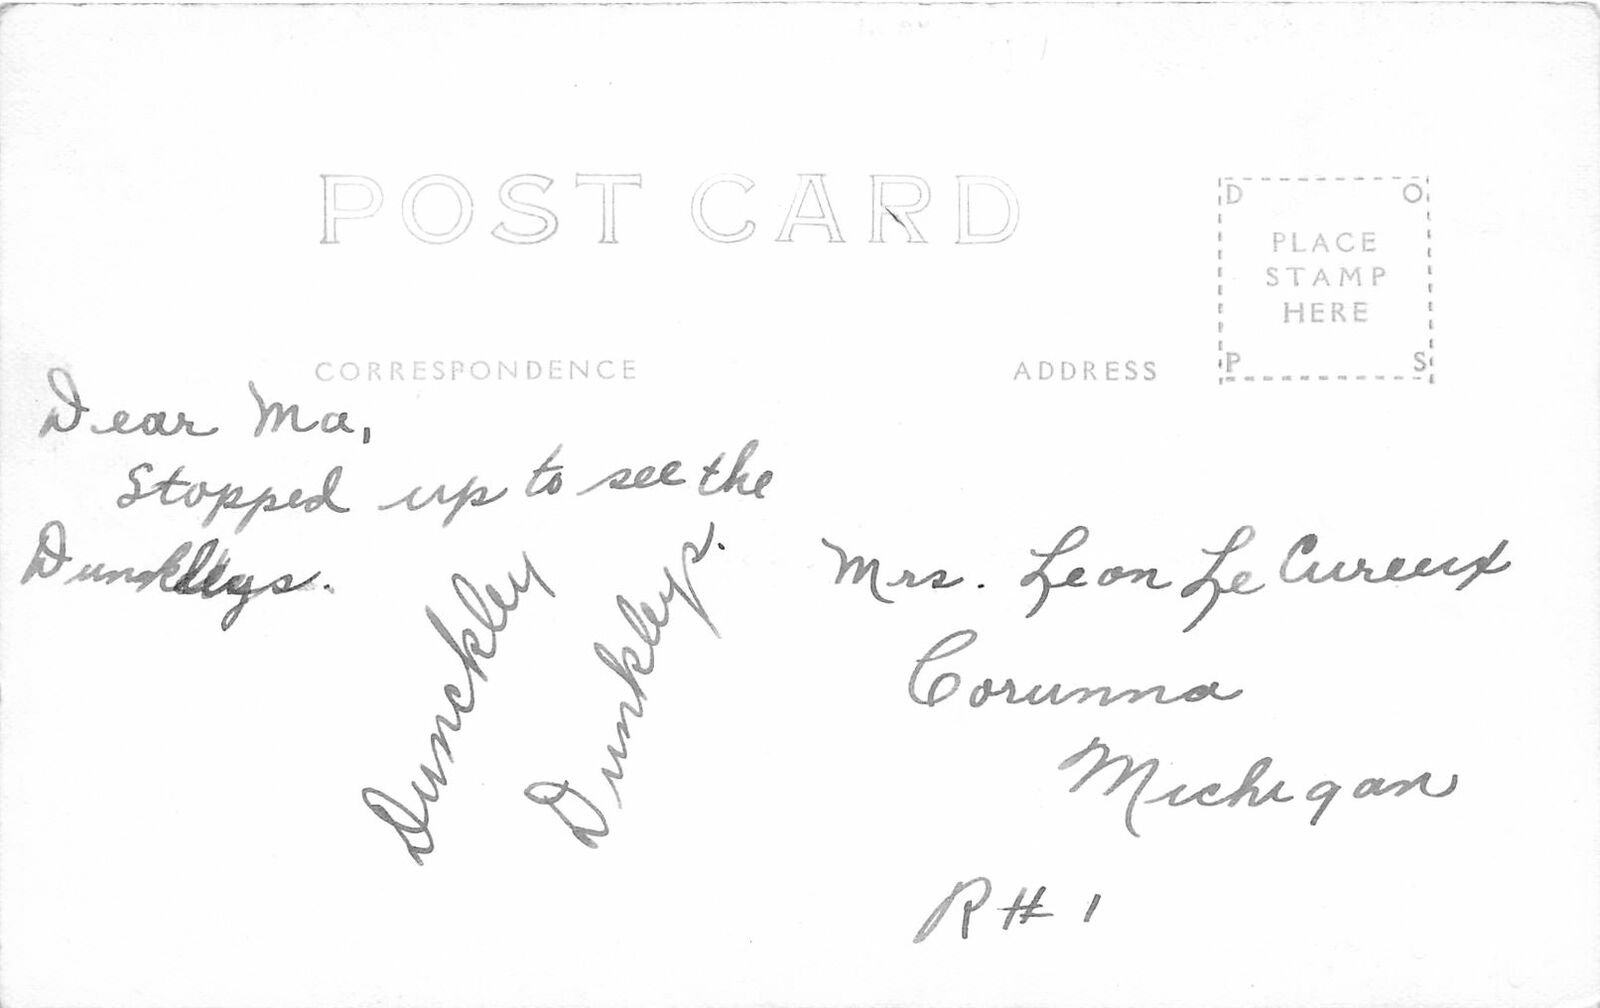 POST CARD
D O
PLACE
STAMP
HERE
P S
CORRESPONDENCE
ADDRESS
Dear Ma,
Stopped up to see the
Dunkleys.
Dunckley
Dunkleys.
Mrs. Leon Le Cureux
Corunna
Michigan
R # 1